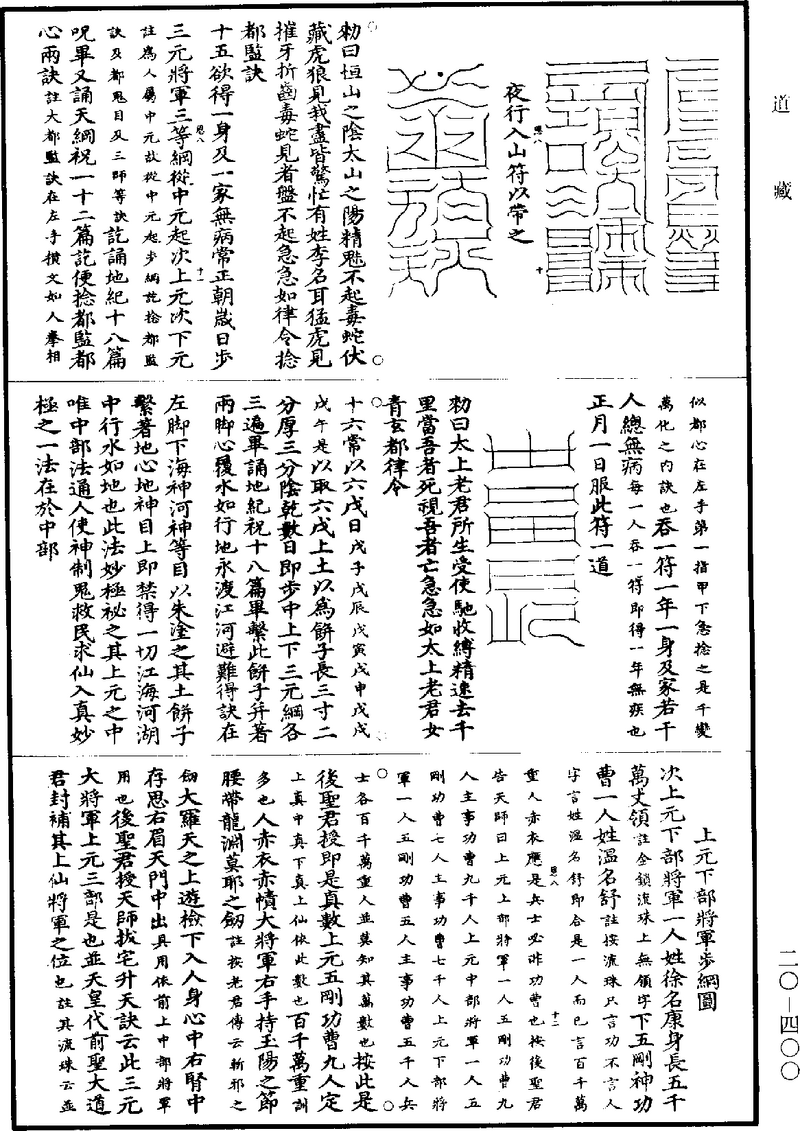 道藏
夜行入山符以帶之
勑曰恒山之陰太山之陽精魅不起毒蛇伏
藏虎狼見我盡皆驚忙有姓李名耳猛虎見
摧牙折齒毒蛇見者盤不起急急如律令捻
都監訣
十五欲得一身及一家無病常正朝歲日步
三元將軍三等綱從中元起次上元次下元
註為人屬中元故從中元起步綱訖捻都監
訣及都鬼目及三師等訣訖誦地紀十八篇
呪畢又誦天綱祝一十二篇訖便捻都監都
心兩訣註大都監訣在左手橫文如人拳相
似都心在左手第一指甲下急捻之是千變
萬化之內訣也吞一符一年一身及家若干
人總無病每一人吞一符即得一年無疾也
正月一日服此符一道
勑曰太上老君所生受使馳收縛精速去千
里當吾者死視吾者亡急急如太上老君女
青玄都律令
十六常以六戊日戊子戊辰戊寅戊申戊戌
戊午是以取六戊上土以為餅子長三寸二
分厚三分陰乾數日即步中上下三元綱各
三遍畢誦地紀祝十八篇畢繫此餅子并著
兩脚心履水如行地永渡江河避難得訣在
左脚下海神河神等目以朱塗之其土餅子
繫著地心地神目上即禁得一切江海河湖
中行水如地也此法妙極祕之其上元之中
唯中部法通人使神制鬼救民求仙入真妙
極之一法在於中部
上元下部將軍步綱圖
次上元下部將軍一人姓徐名康身長五千
萬丈領註金鎖流珠上無領字下五剛神功
曹一人姓溫名舒註按流珠只言功不言人
字言姓溫名舒即合是一人而已言百千萬
重人赤衣應是兵士必非功曹也按後聖君
告天師曰上元上部將軍一人五剛功曹九
人主事功曹九千人上元中部將軍一人五
剛功曹七人主事功曹七千人上元下部將
軍一人五剛功曹五人主事功曹五千人兵
士各百千萬重人並莫知其萬數也按此是
後聖君授即是真數上元五剛功曹九人定
上真中真下真上仙依此數也百千萬重訓
多也人赤衣赤幘大將軍右手持玉陽之節
腰帶龍淵莫耶之劒註按老君傳云斬邪之
劒大羅天之上遊檢下入人身心中右腎中
存思右眉天門中出具用依前上中部將軍
用也後聖君授天師拔宅升天訣云此三元
大將軍上元三部是也並天皇代前聖大道
君封補其上仙將軍之位也註其流珠云並
二〇—四〇〇